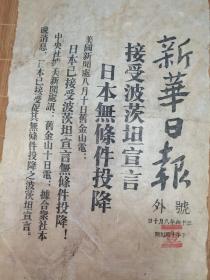 新華日報
號外
接受波茨坦宣言
日本無條件投降
美國新聞處八月十日舊金山電：
日本已接受波茨坦宣言無條件投降！
中央社
新聞處訊：舊金山十日電：據合衆社本
晚消息，日本已接受促其無條件投降之波茨坦宣言。